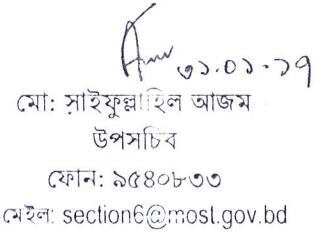 ৩১.০১.১৭
মো: সাইফুল্লাহিল আজম
উপসচিব
ফোন: ৯৫৪০৮৩৩
মেইল: section6@most.gov.bd